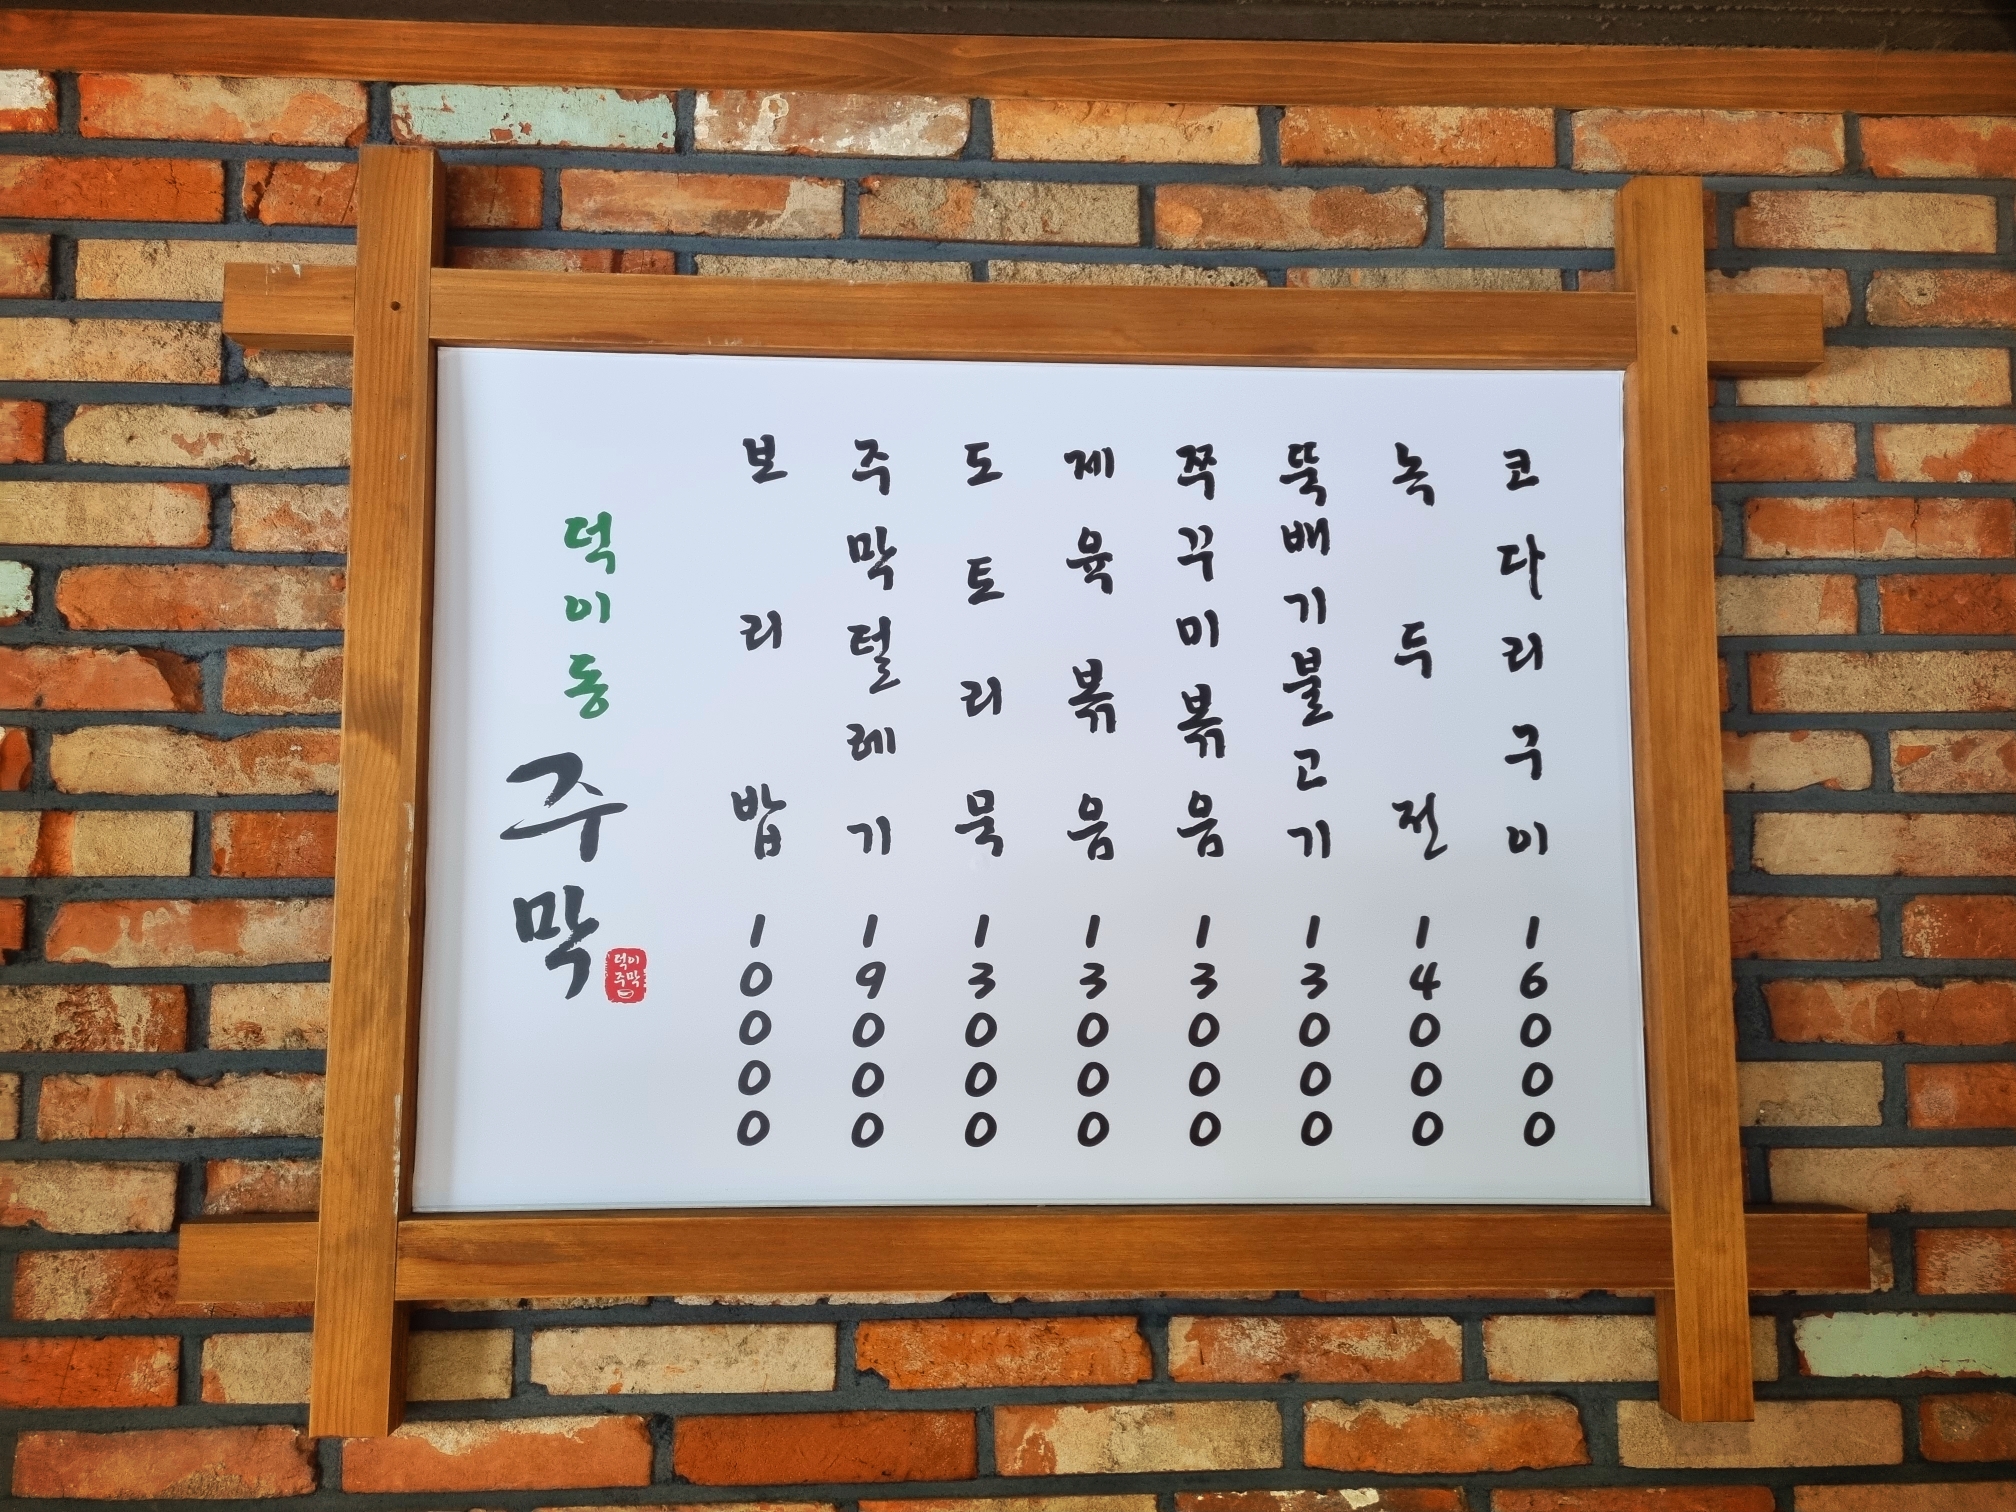 덕이동
주막
덕이
주막
보리밥 10000
주막털레기 19000
도토리묵 13000
제육볶음 13000
쭈꾸미볶음 13000
뚝배기불고기 13000
녹두전 14000
코다리구이 16000